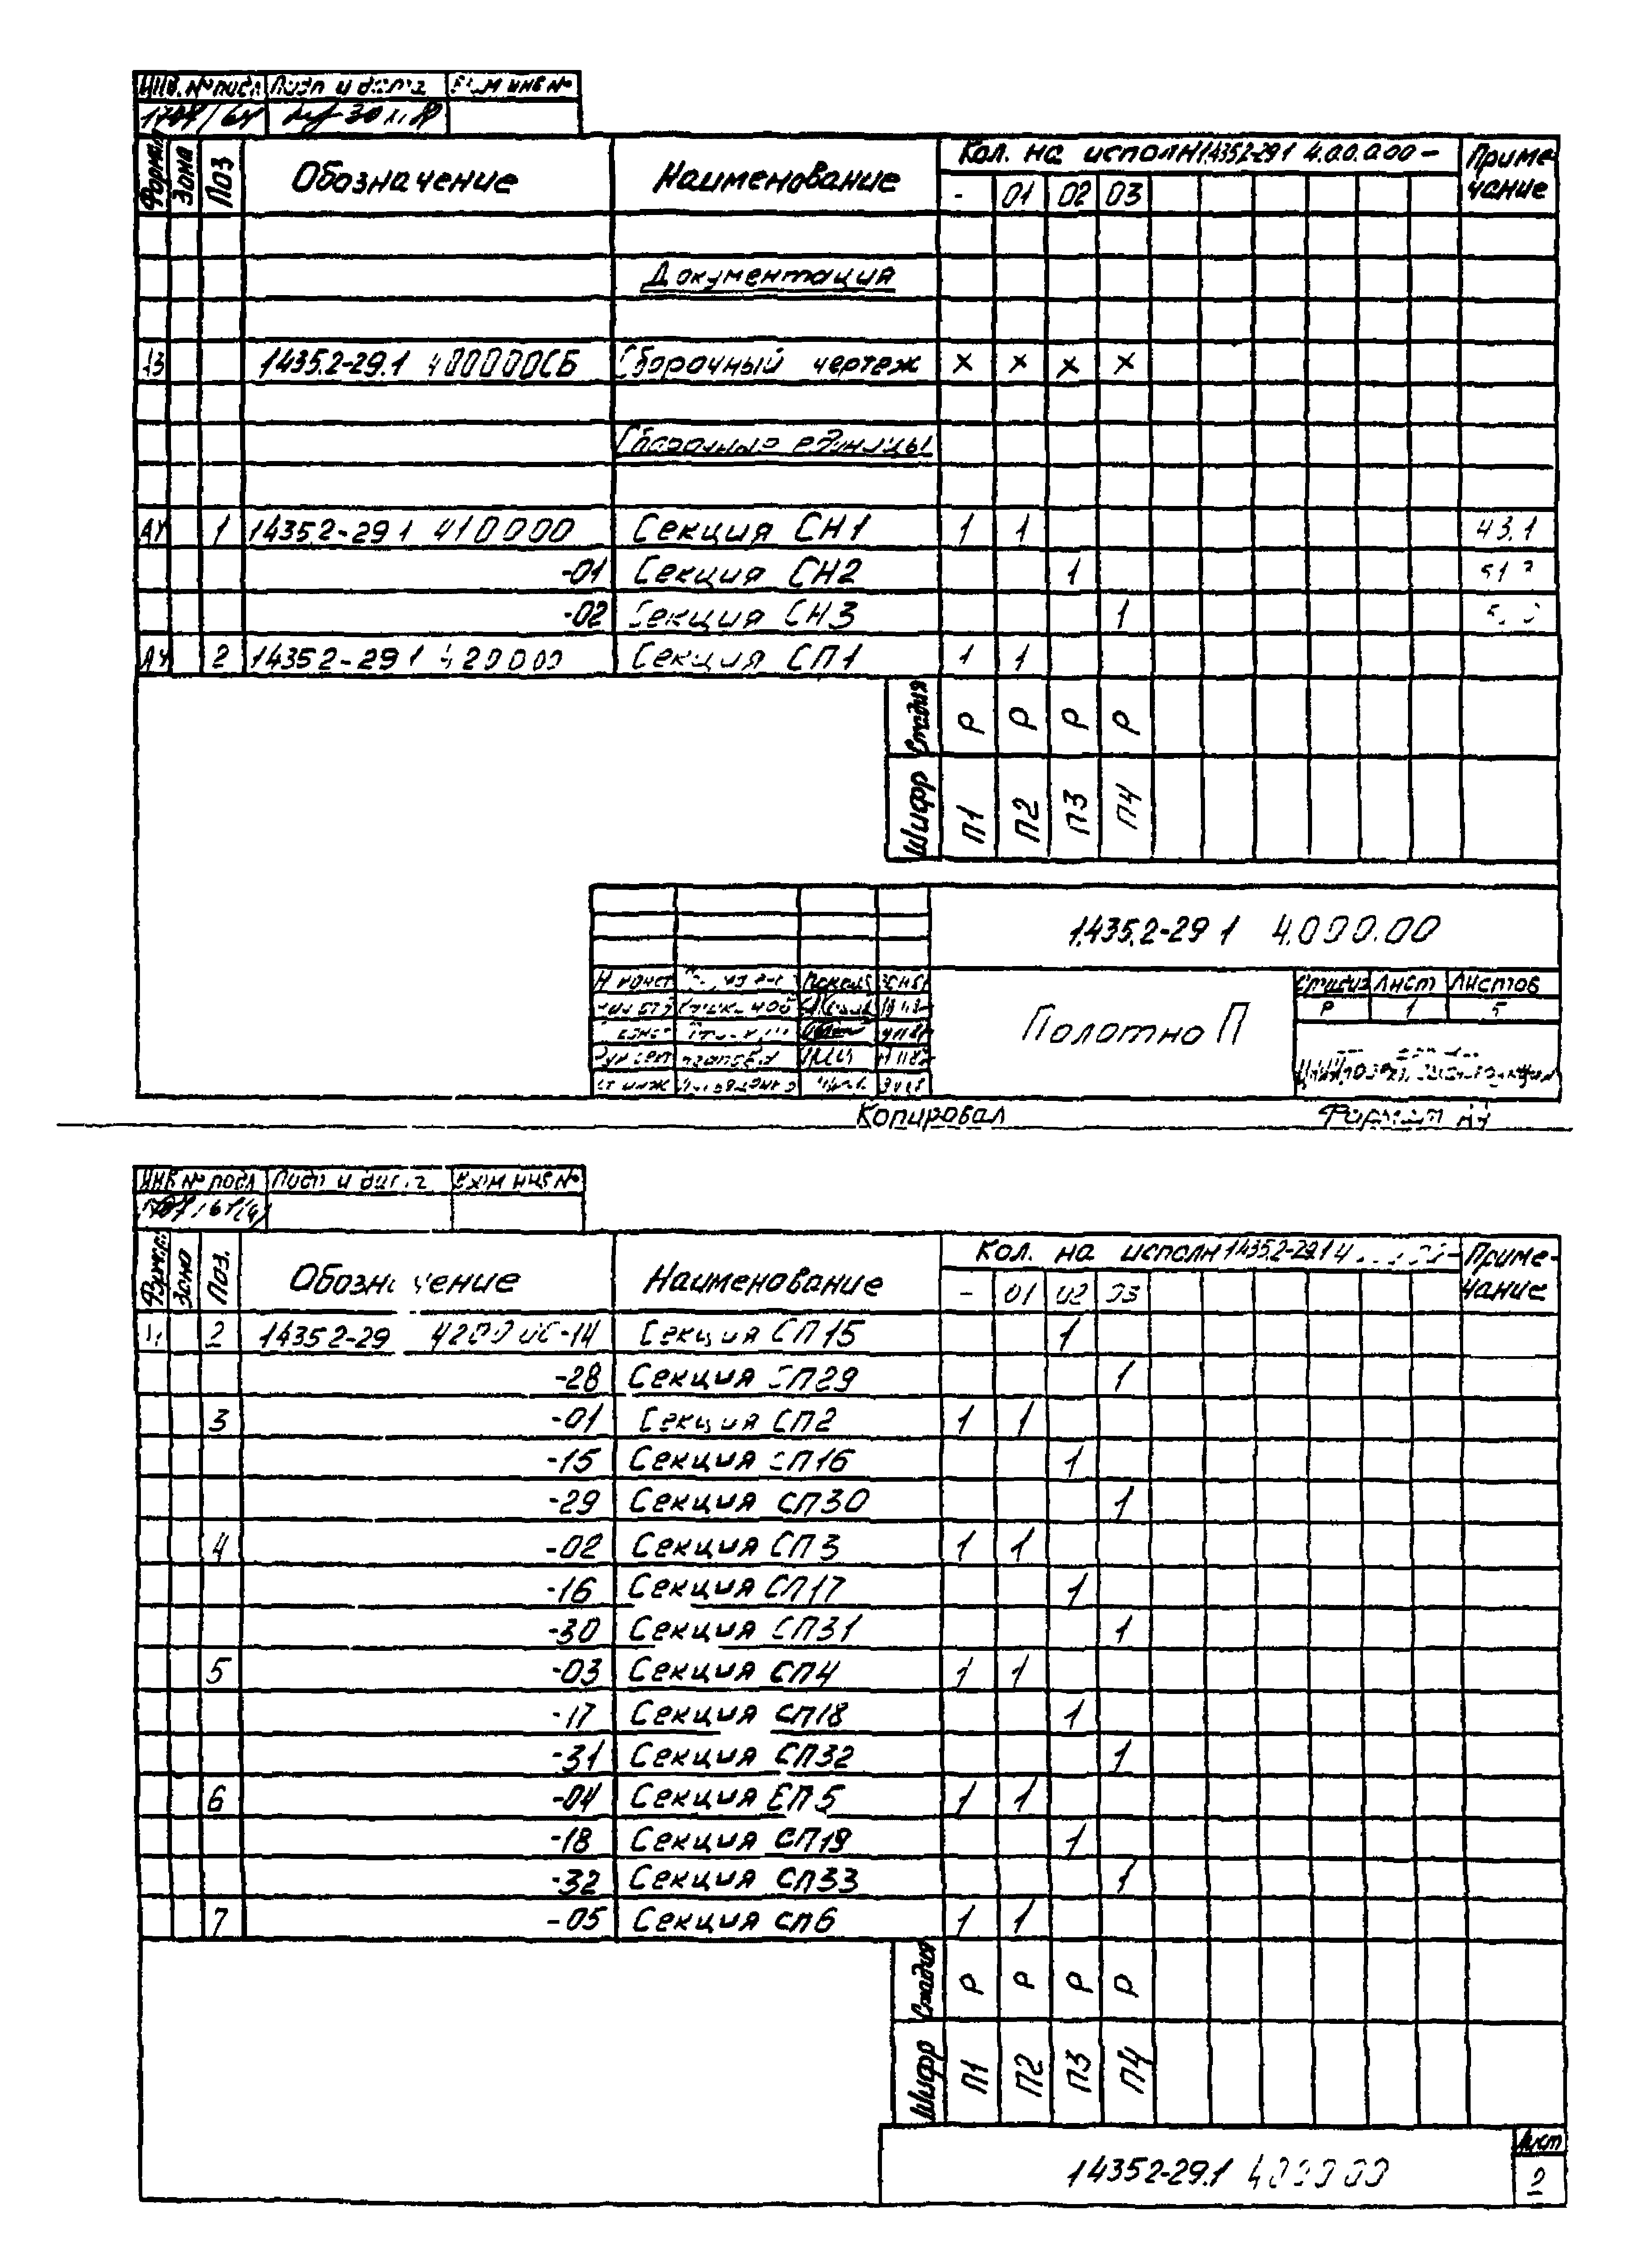 Инв. № подл Подп и дата Взам инв №
Формат Зона Поз Обозначение Наименование Кол. на исполн 1.435.2-29.1 4.0.0.0.00 - Приме-
чание
- 01 02 03
Документация
А3 1435.2-29.1 400000СБ Сборочный чертеж × × × ×
Сборочные единицы
А4 1 1435.2-29 1 410000 Секция СН1 1 1 43,1
-01 Секция СН2 1
-02 Секция СН3 1
А4 2 1435 2-29 1 420000 Секция СП1 1 1
Стадия Р Р Р Р
Шифр П1 П2 П3 П4
1.435.2-29 1 4.000.00
Н конт
Полотно П
Стадия Лист Листов
Р 1 5
Копировал Формат А4
Инв № подл Подп и дата Взам инв №
Формат Зона Поз. Обозначение Наименование Кол. на исполн 1435.2-29.1 Приме-
чание
- 01 02 03
2 1435 2-29 420000-14 Секция СП15 1
-28 Секция СП29 1
3 -01 Секция СП2 1 1
-15 Секция СП16 1
-29 Секция СП30 1
4 -02 Секция СП3 1 1
-16 Секция СП17 1
-30 Секция СП31 1
5 -03 Секция СП4 1 1
-17 Секция СП18 1
-31 Секция СП32 1
6 -04 Секция СП5 1 1
-18 Секция СП19 1
-32 Секция СП33 1
7 -05 Секция СП6 1 1
Стадия Р Р Р Р
Шифр П1 П2 П3 П4
1.4352-29.1 400000
Лист
2